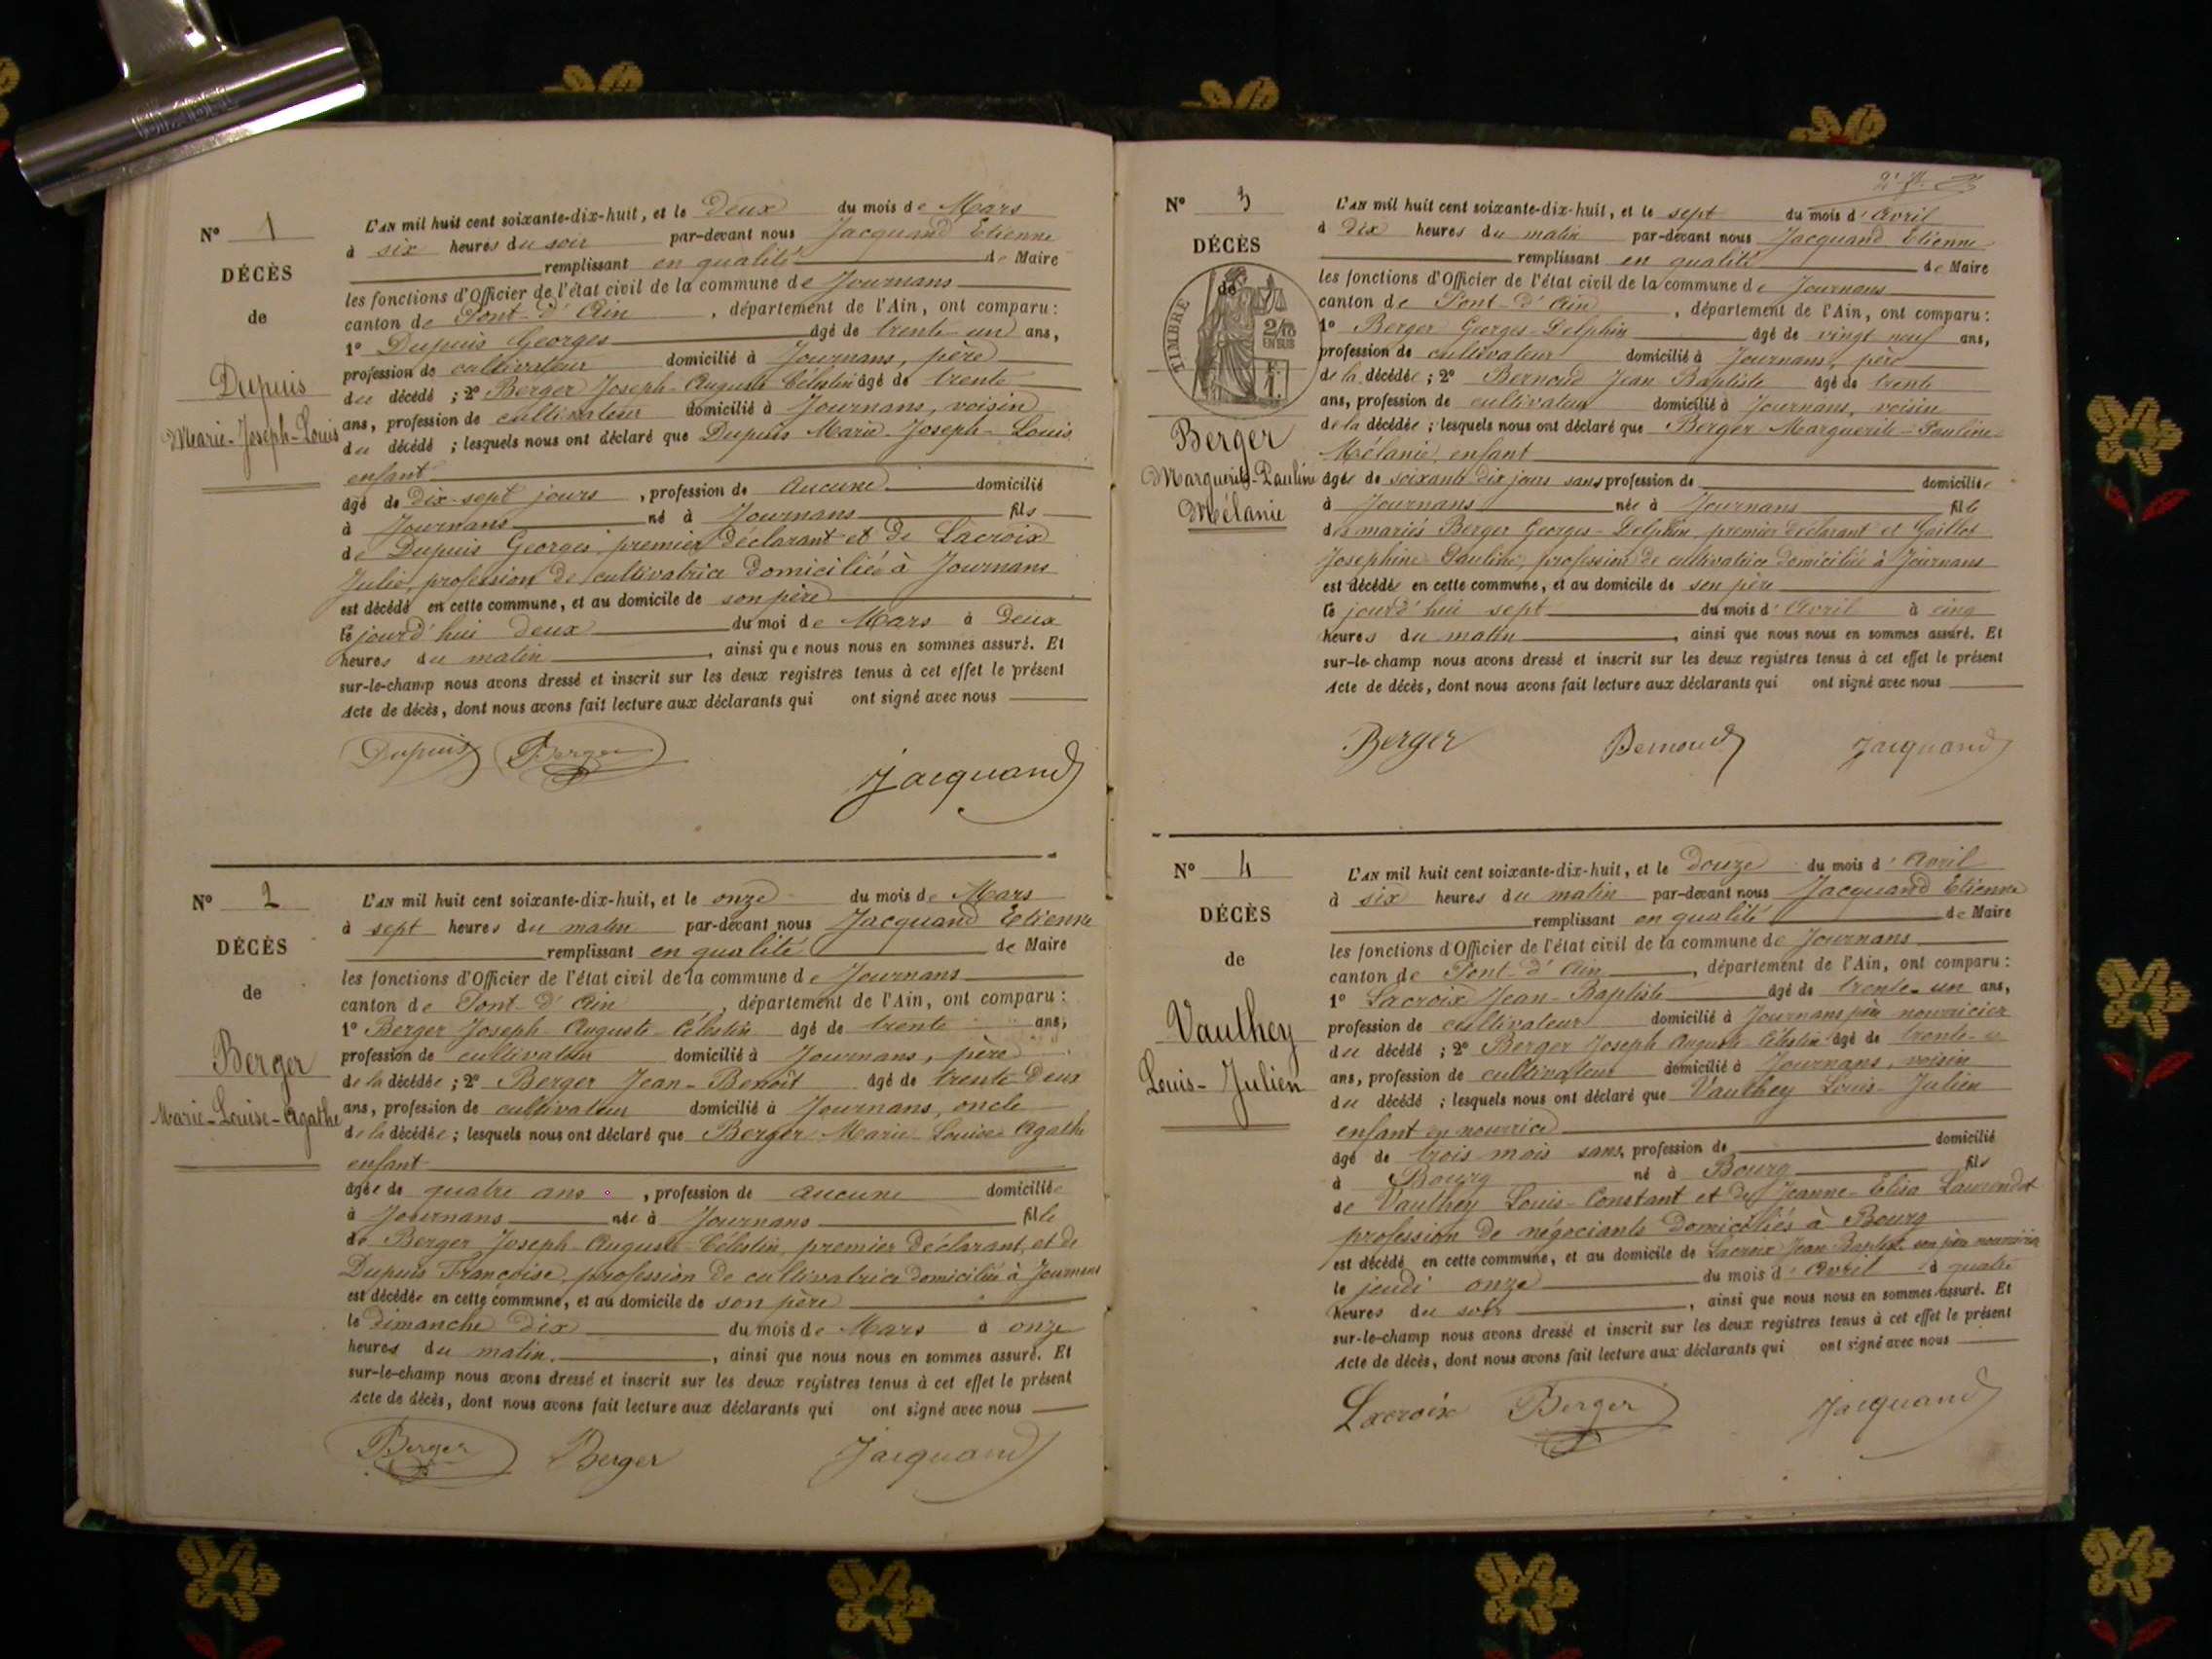 N° 1
DÉCÈS
de
Dupuis
Marie-Joseph-Louis
L'AN mil huit cent soixante-dix-huit, et le deux du mois de Mars
à six heures du soir par-devant nous Jacquand Etienne
remplissant en qualité de Maire
les fonctions d'Officier de l'état civil de la commune de Journans
canton de Pont-d'Ain, département de l'Ain, ont comparu :
1° Dupuis Georges âgé de trente-un ans,
profession de cultivateur domicilié à Journans, père
du décédé ; 2° Berger Joseph-Auguste Célestin âgé de trente
ans, profession de cultivateur domicilié à Journans, voisin
du décédé ; lesquels nous ont déclaré que Dupuis Marie-Joseph-Louis
enfant
âgé de Dix-sept jours, profession de aucune domicilié
à Journans né à Journans fils
de Dupuis Georges, premier déclarant et de Lacroix
Julie, profession de cultivatrice domiciliée à Journans
est décédé en cette commune, et au domicile de son père
ce jourd'hui deux du moi de Mars à deux
heures du matin, ainsi que nous nous en sommes assuré. Et
sur-le-champ nous avons dressé et inscrit sur les deux registres tenus à cet effet le présent
Acte de décès, dont nous avons fait lecture aux déclarants qui ont signé avec nous
Dupuis Berger Jacquand
N° 2
DÉCÈS
de
Berger
Marie-Louise-Agathe
L'AN mil huit cent soixante-dix-huit, et le onze du mois de Mars
à sept heures du matin par-devant nous Jacquand Etienne
remplissant en qualité de Maire
les fonctions d'Officier de l'état civil de la commune de Journans
canton de Pont-d'Ain, département de l'Ain, ont comparu :
1° Berger Joseph-Auguste-Célestin âgé de trente ans,
profession de cultivateur domicilié à Journans, père
de la décédée ; 2° Berger Jean-Benoît âgé de trente-deux
ans, profession de cultivateur domicilié à Journans, oncle
de la décédée ; lesquels nous ont déclaré que Berger Marie-Louise-Agathe
enfant
âgée de quatre ans, profession de aucune domiciliée
à Journans née à Journans fille
de Berger Joseph-Auguste-Célestin, premier déclarant, et de
Dupuis Françoise, profession de cultivatrice domiciliée à Journans
est décédée en cette commune, et au domicile de son père
le dimanche dix du mois de Mars à onze
heures du matin, ainsi que nous nous en sommes assuré. Et
sur-le-champ nous avons dressé et inscrit sur les deux registres tenus à cet effet le présent
Acte de décès, dont nous avons fait lecture aux déclarants qui ont signé avec nous
Berger Berger Jacquand
N° 3
DÉCÈS
de
TIMBRE
2/10
EN SUS
Berger
Marguerite-Pauline
Mélanie
L'AN mil huit cent soixante-dix-huit, et le sept du mois d'Avril
à Dix heures du matin par-devant nous Jacquand Etienne
remplissant en qualité de Maire
les fonctions d'Officier de l'état civil de la commune de Journans
canton de Pont-d'Ain, département de l'Ain, ont comparu :
1° Berger Georges-Delphin âgé de vingt neuf ans,
profession de cultivateur domicilié à Journans, père
de la décédée ; 2° Bernoud Jean Baptiste âgé de trente
ans, profession de cultivateur domicilié à Journans, voisin
de la décédée ; lesquels nous ont déclaré que Berger Marguerite-Pauline
Mélanie, enfant
âgée de soixante dix jours sans profession de domiciliée
à Journans née à Journans fille
des mariés Berger Georges-Delphin, premier déclarant et Gaillot
Josephine Pauline, profession de cultivatrice domiciliée à Journans
est décédée en cette commune, et au domicile de son père
ce jourd'hui sept du mois d'Avril à cinq
heures du matin, ainsi que nous nous en sommes assuré. Et
sur-le-champ nous avons dressé et inscrit sur les deux registres tenus à cet effet le présent
Acte de décès, dont nous avons fait lecture aux déclarants qui ont signé avec nous
Berger Bernoud Jacquand
N° 4
DÉCÈS
de
Vauthey
Louis-Julien
L'AN mil huit cent soixante-dix-huit, et le douze du mois d'Avril
à six heures du matin par-devant nous Jacquand Etienne
remplissant en qualité de Maire
les fonctions d'Officier de l'état civil de la commune de Journans
canton de Pont-d'Ain, département de l'Ain, ont comparu :
1° Lacroix Jean-Baptiste âgé de trente-un ans,
profession de cultivateur domicilié à Journans père nourricier
du décédé ; 2° Berger Joseph Auguste Célestin âgé de trente
ans, profession de cultivateur domicilié à Journans, voisin
du décédé ; lesquels nous ont déclaré que Vauthey Louis-Julien
enfant en nourrice
âgé de trois mois sans, profession de domicilié
à Bourg né à Bourg fils
de Vauthey Louis-Constant et de Jeanne-Elisa
profession de négociants domiciliés à Bourg
est décédé en cette commune, et au domicile de Lacroix Jean Baptiste son père nourricier
le jeudi onze du mois d'Avril à quatre
heures du soir, ainsi que nous nous en sommes assuré. Et
sur-le-champ nous avons dressé et inscrit sur les deux registres tenus à cet effet le présent
Acte de décès, dont nous avons fait lecture aux déclarants qui ont signé avec nous
Lacroix Berger Jacquand